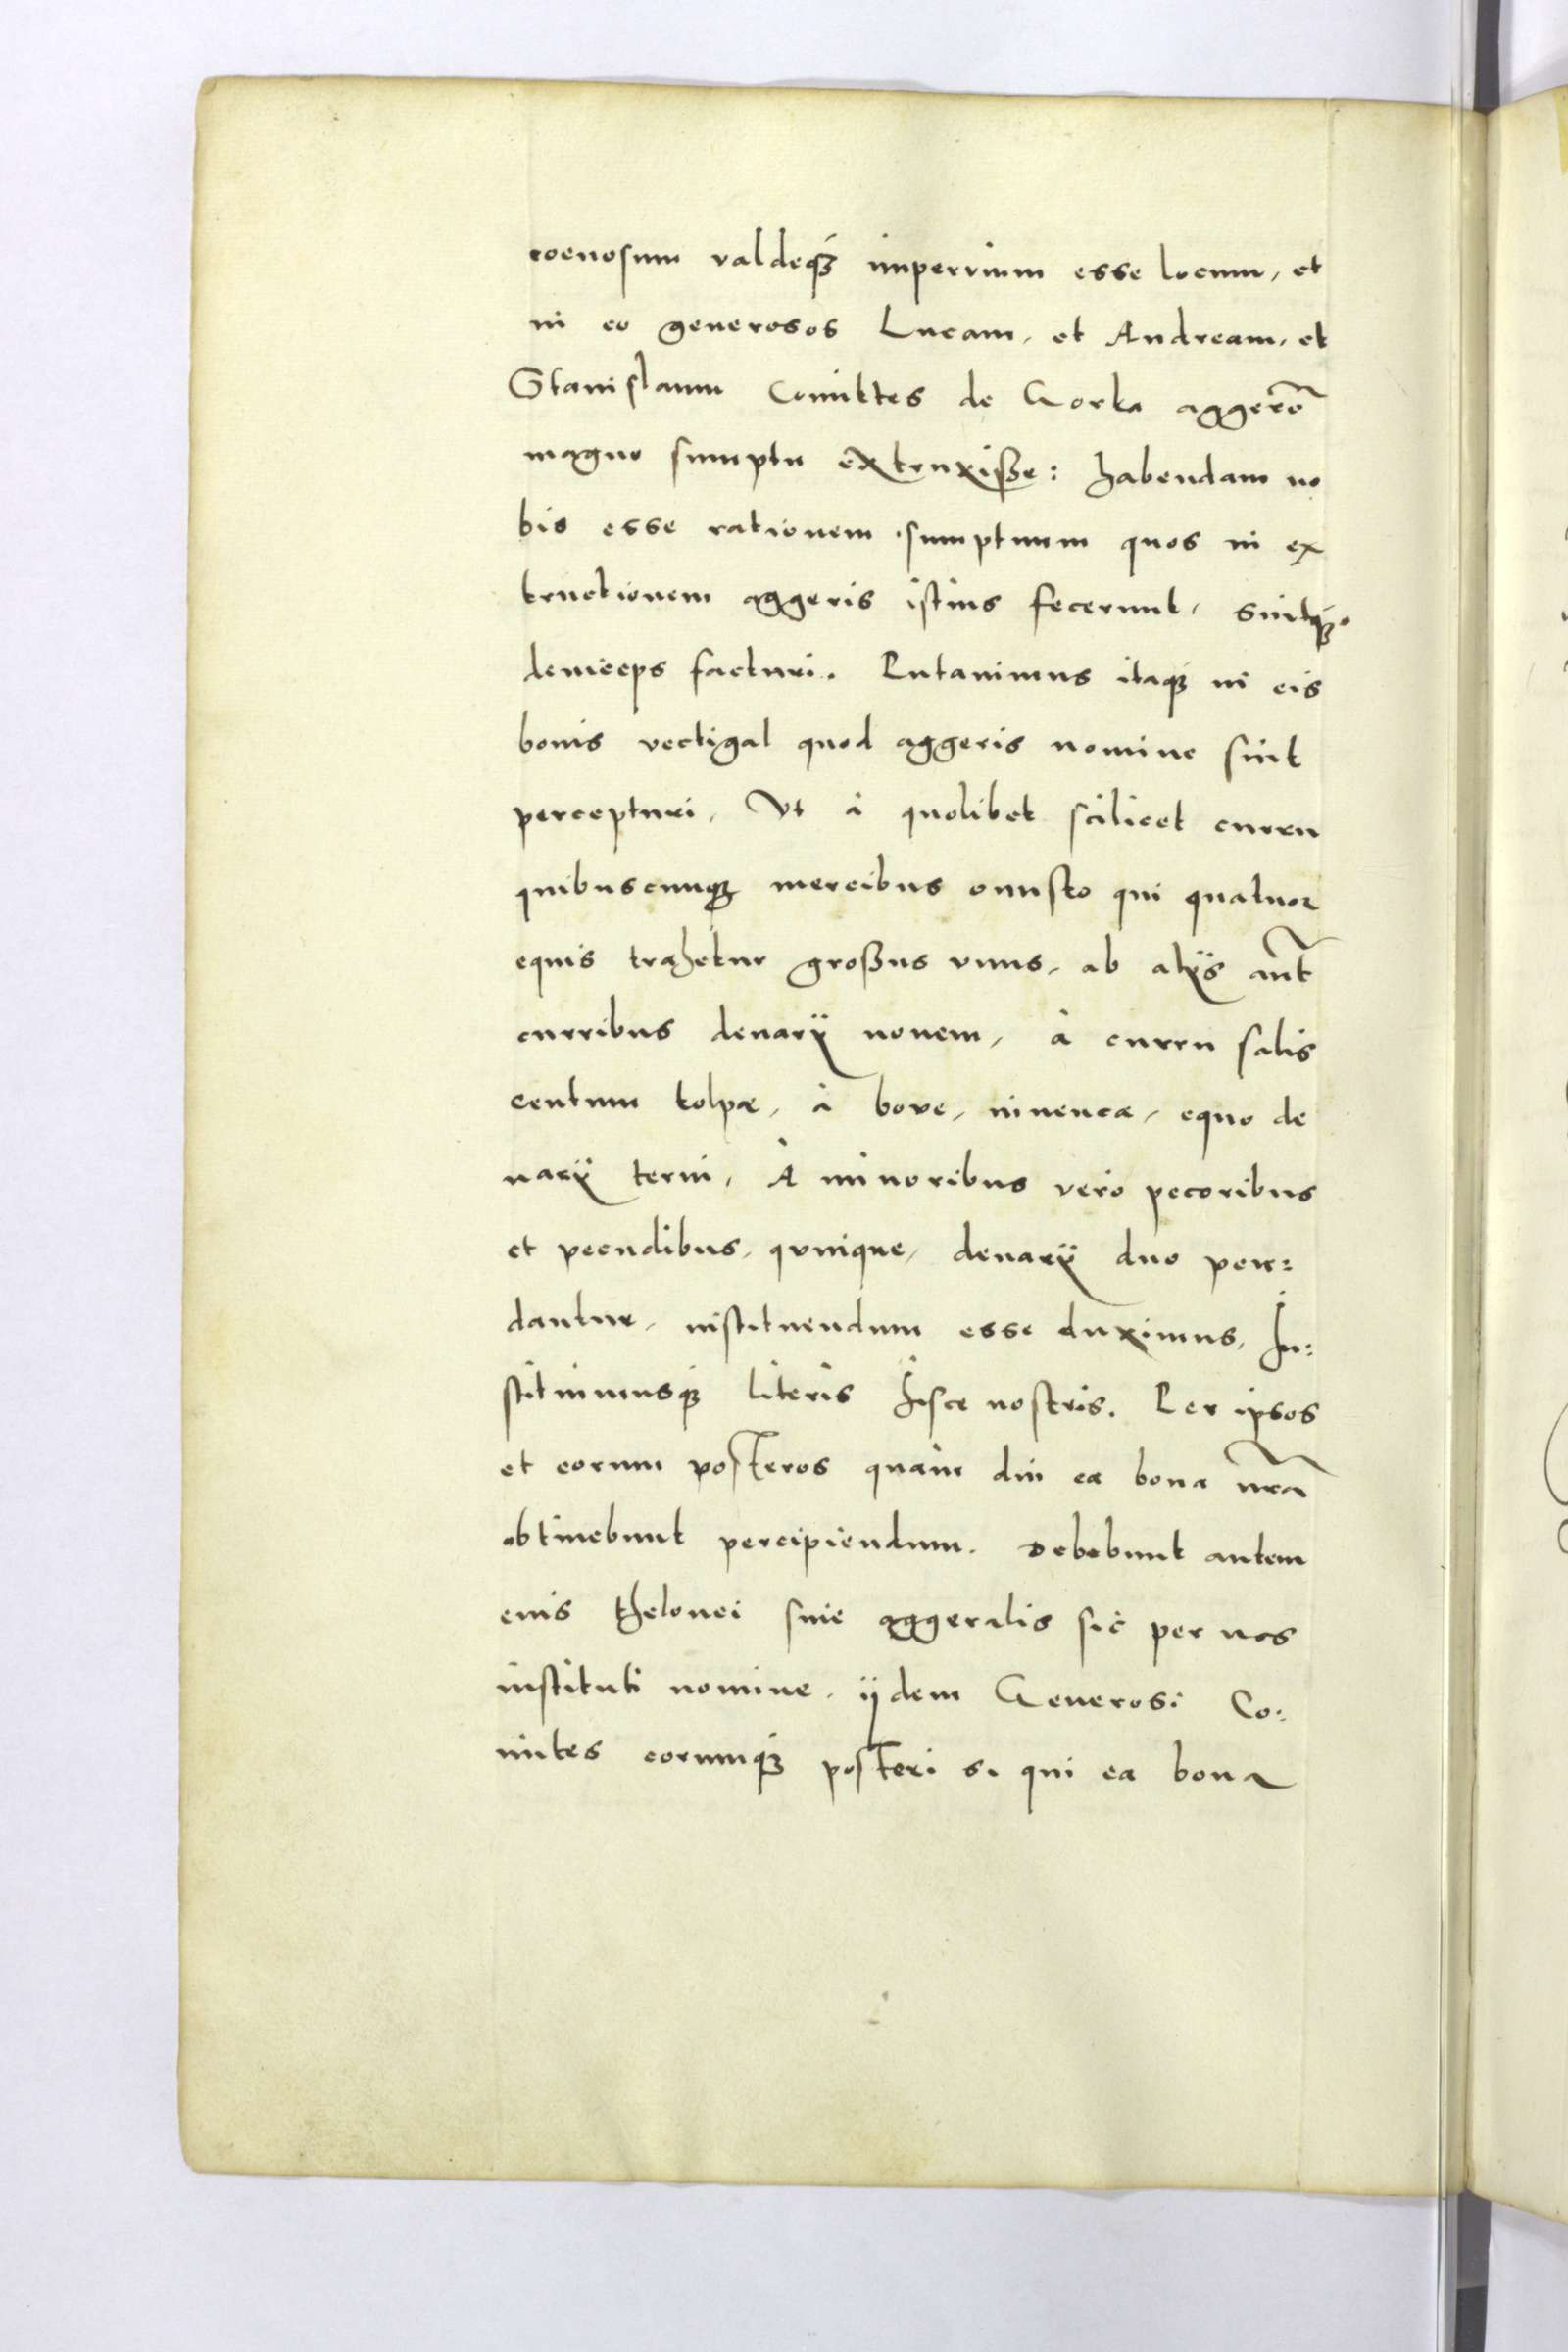 coenosum valdeq₃ imperuium esse locum, et
in eo generosos Lucam, et Andream, et
Stanislaum Comites de Gorka aggerē
magno sumptu extruxisse: habendam no
bis esse rationem sumptuum quos in ex
tructionem aggeris istius fecerunt, sintq₃
deinceps facturi. Putauimus itaq₃ in eis
bonis vectigal quod aggeris nomine sint
percepturi, Vt à quolibet scilicet curru
quibuscunq₃ mercibus onusto qui quatuor
equis trahetur großus vnus, ab alÿs aut̄
curribus denarÿ nouem, à curru salis
centum tolpæ, à boue, iuuenca, equo de
narÿ terni, À minoribus vero pecoribus
et pecudibus, quinque, denarÿ duo pen:
dantur, instituendum esse duximus, In:
stituimusq₃ literis hisce nostris. Per ipsos
et eorum posteros quàm diu ea bona nr̄a
obtinebunt percipiendum. Debebunt autem
euis thelonei siue aggeralis sic per nos
instituti nomine, ijdem Generosi Co:
mites eorumq₃ posteri si qui ea bona